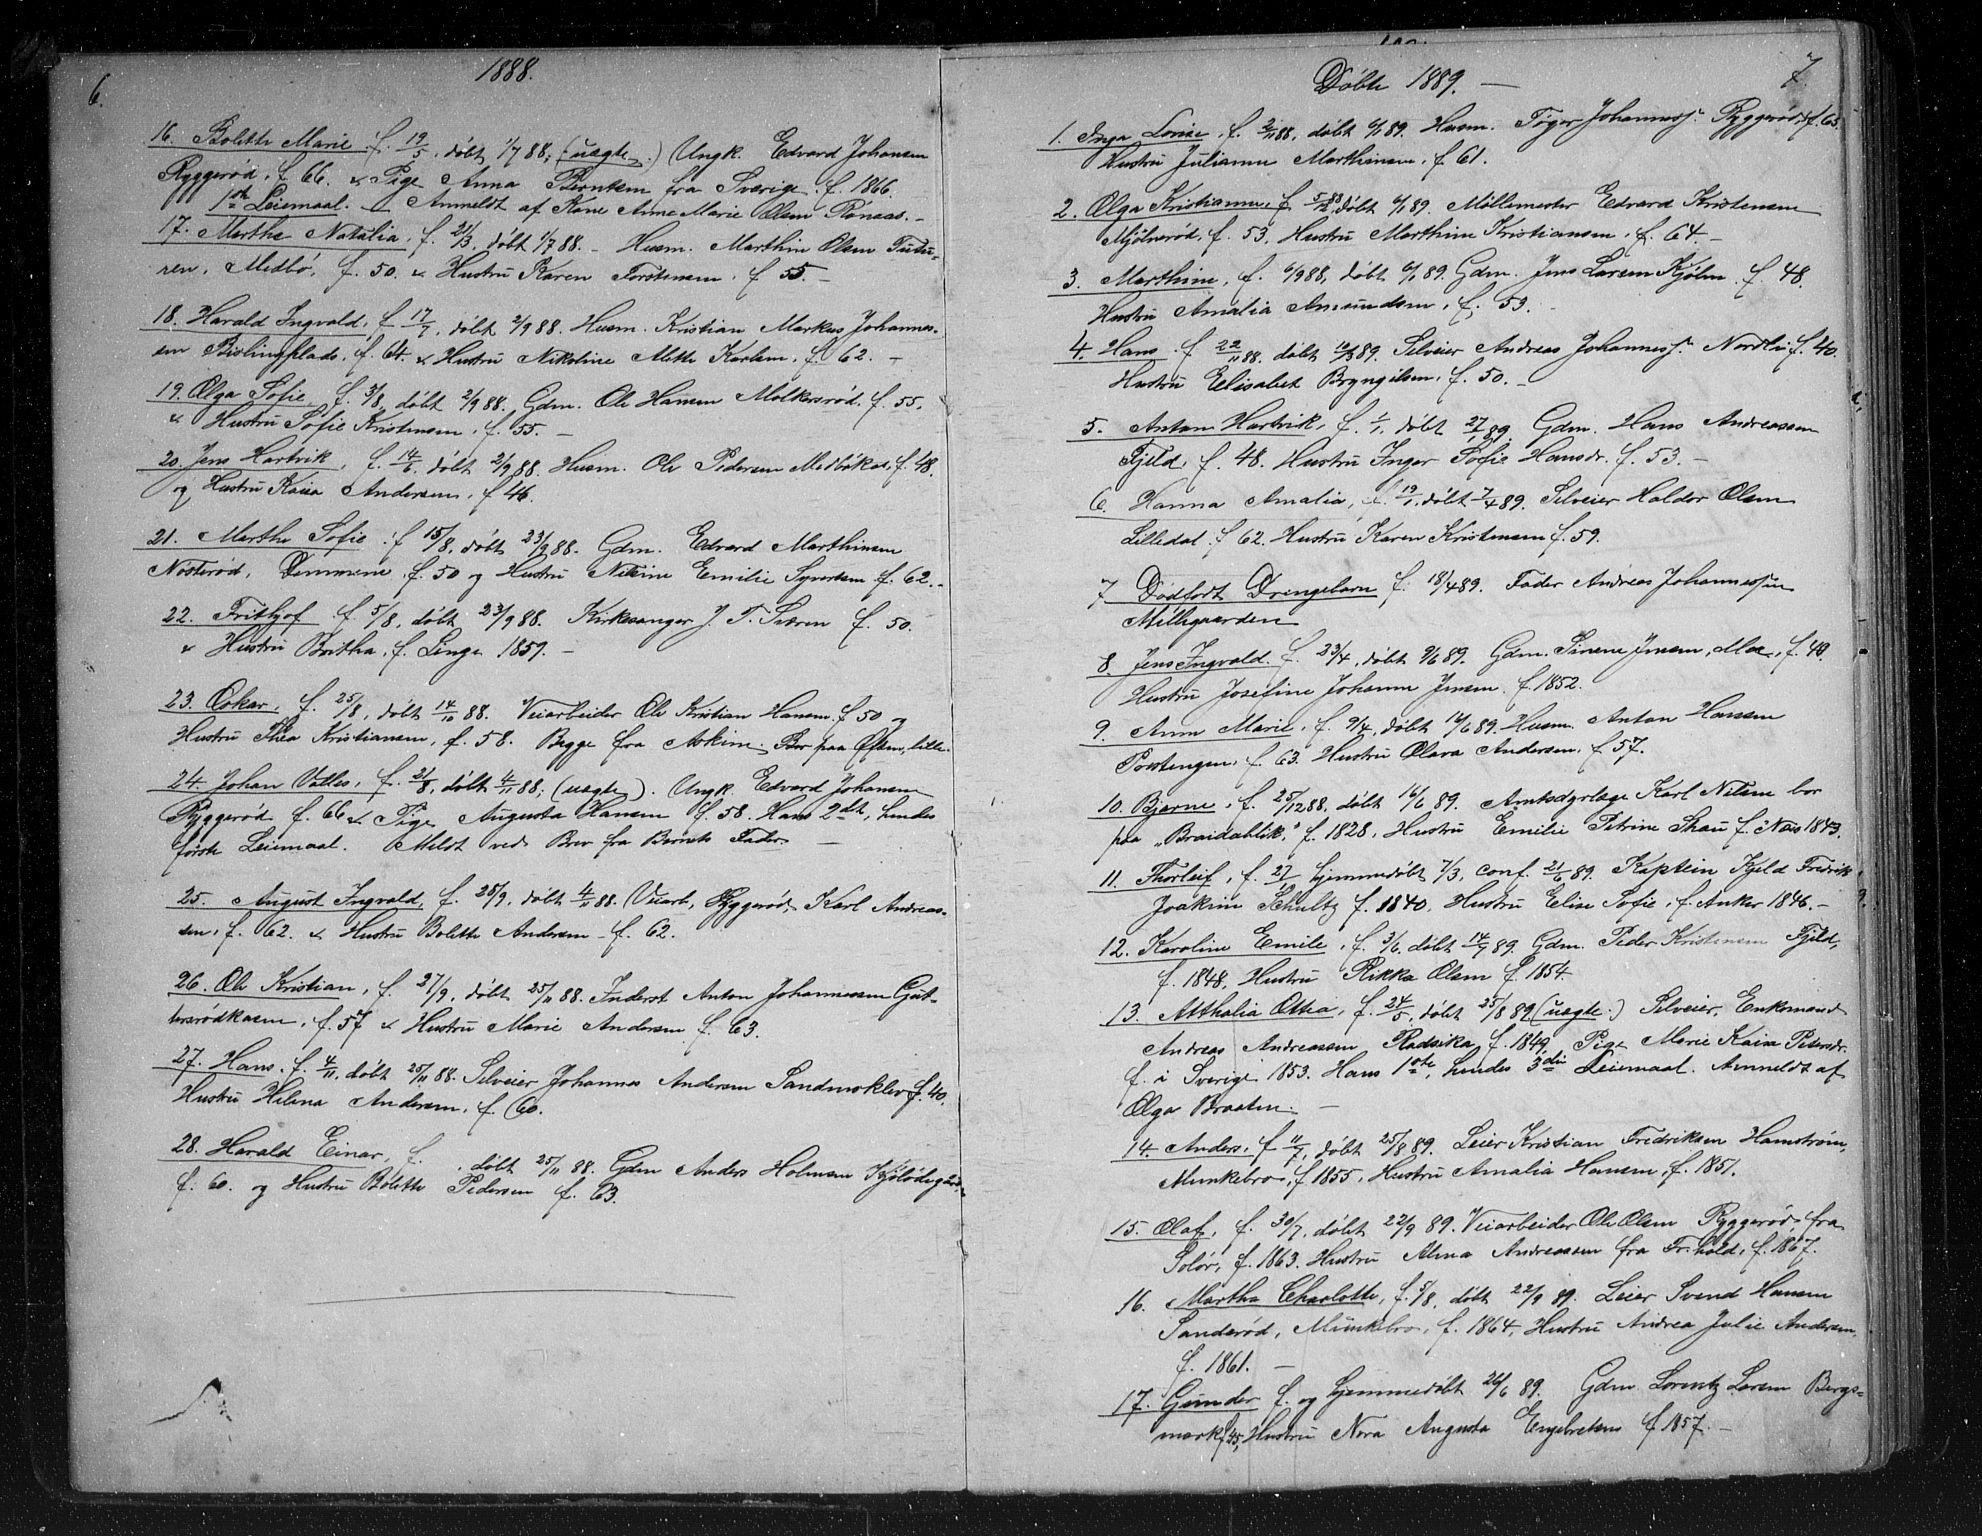 6.
1888.
16. Bolette Marie. f. 19/5, døbt 1/7 88, (uægte.) Ungk. Edvard Johansen
Ryggerød. f. 66. & Pige Anna Berntsen fra Sverige. f. 1866.
1ste Leiemaal. Anmeldt af Kone Anne Marie Olsen Rønaas. -
17. Marthe Natalia, f. 21/3, døbt 1/7 88. - Husm. Marthin Olsen
Medbø, f. 50. & Hustru Karen Torstensen. f. 55. -
18. Harald Ingvald, f. 17/7, døbt 2/9 88. Husm. Kristian Markus Johannes-
sen Bislingplads. f. 64. & Hustru Nikoline Mette Karlsen. f. 62. -
19. Olga Sofie, f. 3/8, døbt 2/9 88. Gdm. Ole Hansen Molkersrød. f. 55.
& Hustru Sofie Kristensen. f. 55. -
20. Jens Hartvik, f. 14/6, døbt 2/9 88. Husm. Ole Pedersen f. 48.
og Hustru Kaisa Andersen, f 46.
21. Marthe Sofie. f 15/8, døbt 23/9 88. Gdm. Edvard Marthinsen
Nøsterød, f. 50 og Hustru Nikine Emilie Syvertsen f. 62. -
22. Frithjof. f. 5/8, døbt 23/9 88. Kirkesanger J. T. f. 50.
& Hustru Bertha, f. Linge 1859. -
23. Oskar, f. 25/8, døbt 14/10 88. Veiarbeider Ole Kristian Hansen f. 50 og
Hustru Thea Kristiansen, f. 58. Begge fra Askim. Bor paa lille.
24. Johan f. 21/8, døbt 4/11 88; (uægte). Ungk. Edvard Johansen
Ryggerød f. 66 & Pige Augusta Hansen f. 58. Hans 2det, hendes
første Leiemaal. Meldt ved Brev fra Barnets Fader. -
25. August Ingvald, f. 25/9, døbt 4/11 88. Veiarb, Ryggerød Karl Andreas-
sen, f. 62. & Hustru Bolette Andersen - f. 62.
26. Ole Kristian, f. 27/9, døbt 25/11 88. Inderst Anton Johannessen Gut-
tersrødkasen, f. 57 & Hustru Marie Andersen f. 63.
27. Hans. f. 4/11, døbt 25/11 88. Selveier Johannes Andersen Sandmoklev f. 40.
Hustru Helena Andersen, f. 60.
28. Harald Einar, f. , døbt 25/11 88. Gdm Anders Holmsen
f. 60. og Hustru Bolette Pedersen f. 63.
7.
Døbte 1889. -
1. Inga Lovise, f. 2/11 88, døbt 6/1 89. Husm. Tøger Johanness. Ryggerød f. 63.
Hustru Julianne Marthinsen. f 61.
2. Olga Kristianne, f. 5/12 88, døbt 6/1 89. Møllemester Edvard Kristensen
Mjølnerød, f. 53, Hustru Marthine Kristiansen, f. 64. -
3. Marthine, f. 6/9 88, døbt 6/1 89. Gdm. Jens Larsen Kjølen f. 48.
Hustru Amalia Amundsen, f. 53.
4. Hans. f 22/11 88, døbt 89. Selveier Andreas Johanness. Nordli f. 40.
Hustru Elisabet Bryngilsen. f. 50. -
5. Anton Hartvik, f. 1/1, døbt 27/1 89. Gdm. Hans Andreassen
Fjeld, f. 48. Hustru Inger Sofie Hansdr. f. 53. -
6. Hanna Amalia, f. 19/1, døbt 7/4 89. Selveier Haldor Olsen
Lilledal f 62. Hustru Karen Kristensen f. 59.
7 Dødfødt Drengebarn f. 18/4 89. Fader Andreas Johannessen
Møllegaarden
8. Jens Ingvald. f. 23/4, døbt 9/6 89. Gdm. Simen Jensen, Moe, f. 49.
Hustru Josefine Johanne Jensen f. 1852.
9. Anna Marie, f. 9/4, døbt 14/6 89. Husm. Anton Hansen
Postengen, f. 63. Hustru Olava Andersen, f. 57.
10. Bjarne, f. 25/12 88, døbt 16/6 89. Amtsdyrlæge Karl Nilsen bor
paa „Breidablik," f. 1828, Hustru Emilie Petrine Skau f. Næs 1843.
11. Thorleif, f. hjemmedøbt 7/3, conf. 21/6 89. Kaptein Kjeld Fredrik
Joakim Schultz f. 1840. Hustru Elise Sofie, f. Anker 1846. -
12. Karoline Emile, f. 3/6, døbt 14/7 89 Gdm. Peder Kristensen Fjeld,
f. 1848, Hustru Rikka Olsen f. 1854.
13. Atthalia Ottea, f. 24/5, døbt 25/8 89 (uægte.) Selveier, Enkemand
Andreas Andreassen f. 1849, Pige Marie Kaisa Petersdr.
f. i Sverige 1853. Hans 1ste, hendes 3die Leiemaal. Anmeldt af
Olga Braaten. -
14. Anders, f. 11/7, døbt 25/8 89. Leier Kristian Fredriksen Hamstrøm,
Munkebro, f. 1855, Hustru Amalia Hansen, f. 1851.
15. Olaf, f. 30/7, døbt 22/9 89. Veiarbeider Ole Olsen Ryggerød, fra
Solør, f. 1863. Hustru Alma Andreassen fra Fr.hald, f. 1867.
16. Martha Charlotte, f. 5/8, døbt 22/9 89. Leier Svend Hansen
Sanderød, Munkebro, f. 1864, Hustru Andrea Julie Andersen
f. 1861. -
17. Gunder f. og hjemmedøbt 26/6 89. Gdm. Lorentz Larsen Bergs-
mark f 45, Hustru Nora Augusta Engebretsen f 1857. -